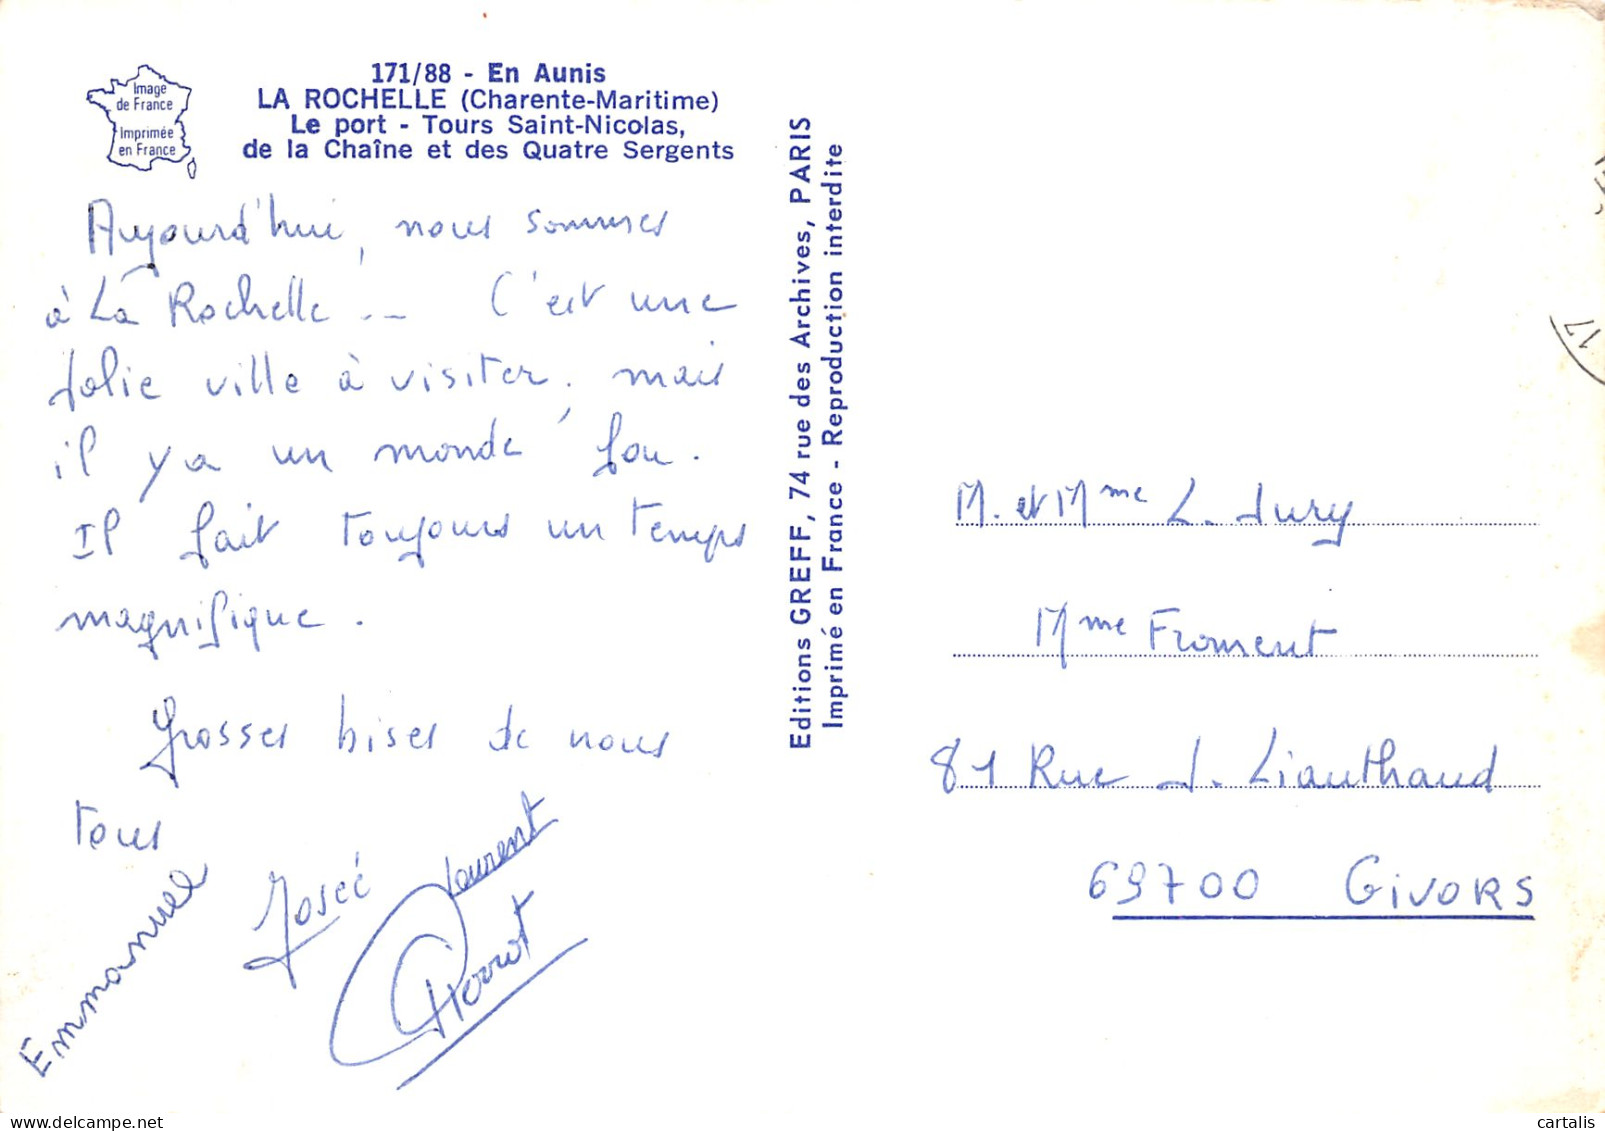 Image
de France
Imprimée
en France
171/88 - En Aunis
LA ROCHELLE (Charente-Maritime)
Le port - Tours Saint-Nicolas,
de la Chaîne et des Quatre Sergents
Aujourd'hui, nous sommes
à La Rochelle... C'est une
Jolie ville à visiter, mais
il y a un monde fou.
Il fait toujours un temps
magnifique.
Grosses bises de nous
tous
Emmanuel
Josée
Laurent
Pierrot
Editions GREFF, 74 rue des Archives, PARIS
Imprimé en France - Reproduction interdite
17
M. et Mme L. Jury
Mme Froment
81 Rue J. Liauthaud
69700 GIVORS
cartalis
delcampe.net